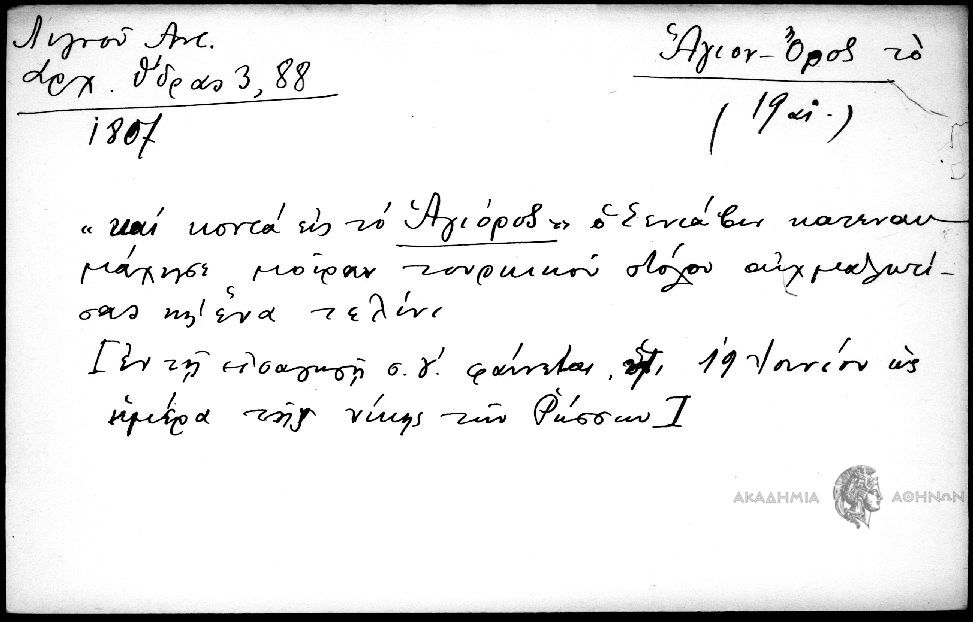 Λιγνοῦ Ἀντ.
Ἀρχ. Ὕδρας 3, 88
1807
Ἅγιον-Ὄρος τὸ
(19 αἰ.)
« καὶ κοντά εἰς τό Ἁγιόρος » ὁ Σενιάβιν κατεναυ
μάχησε μοῖραν τουρκικοῦ στόλου αἰχμαλωτί-
σας κι' ἕνα τελίνι
[Ἐν τῇ εἰσαγωγῇ σ. γ΄. φαίνεται ἡ 19 Ἰουνίου ὡς
ἡμέρα τῆς νίκης τῶν Ρώσσων]
ΑΚΑΔΗΜΙΑ ΑΘΗΝΩΝ